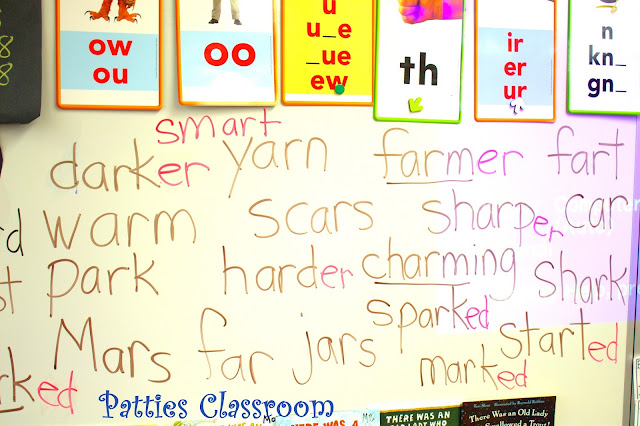 8
8
ow
ou
oo
u
u_e
_ue
ew
th
ir
er
ur
n
kn_
gn_
smart
darker yarn farmer fart
warm scars sharper car
park harder charming shark
sparked
Mars far jars started
marked
ked
Patties Classroom
THERE WAS AN
OLD LADY
There Was an Old Lady